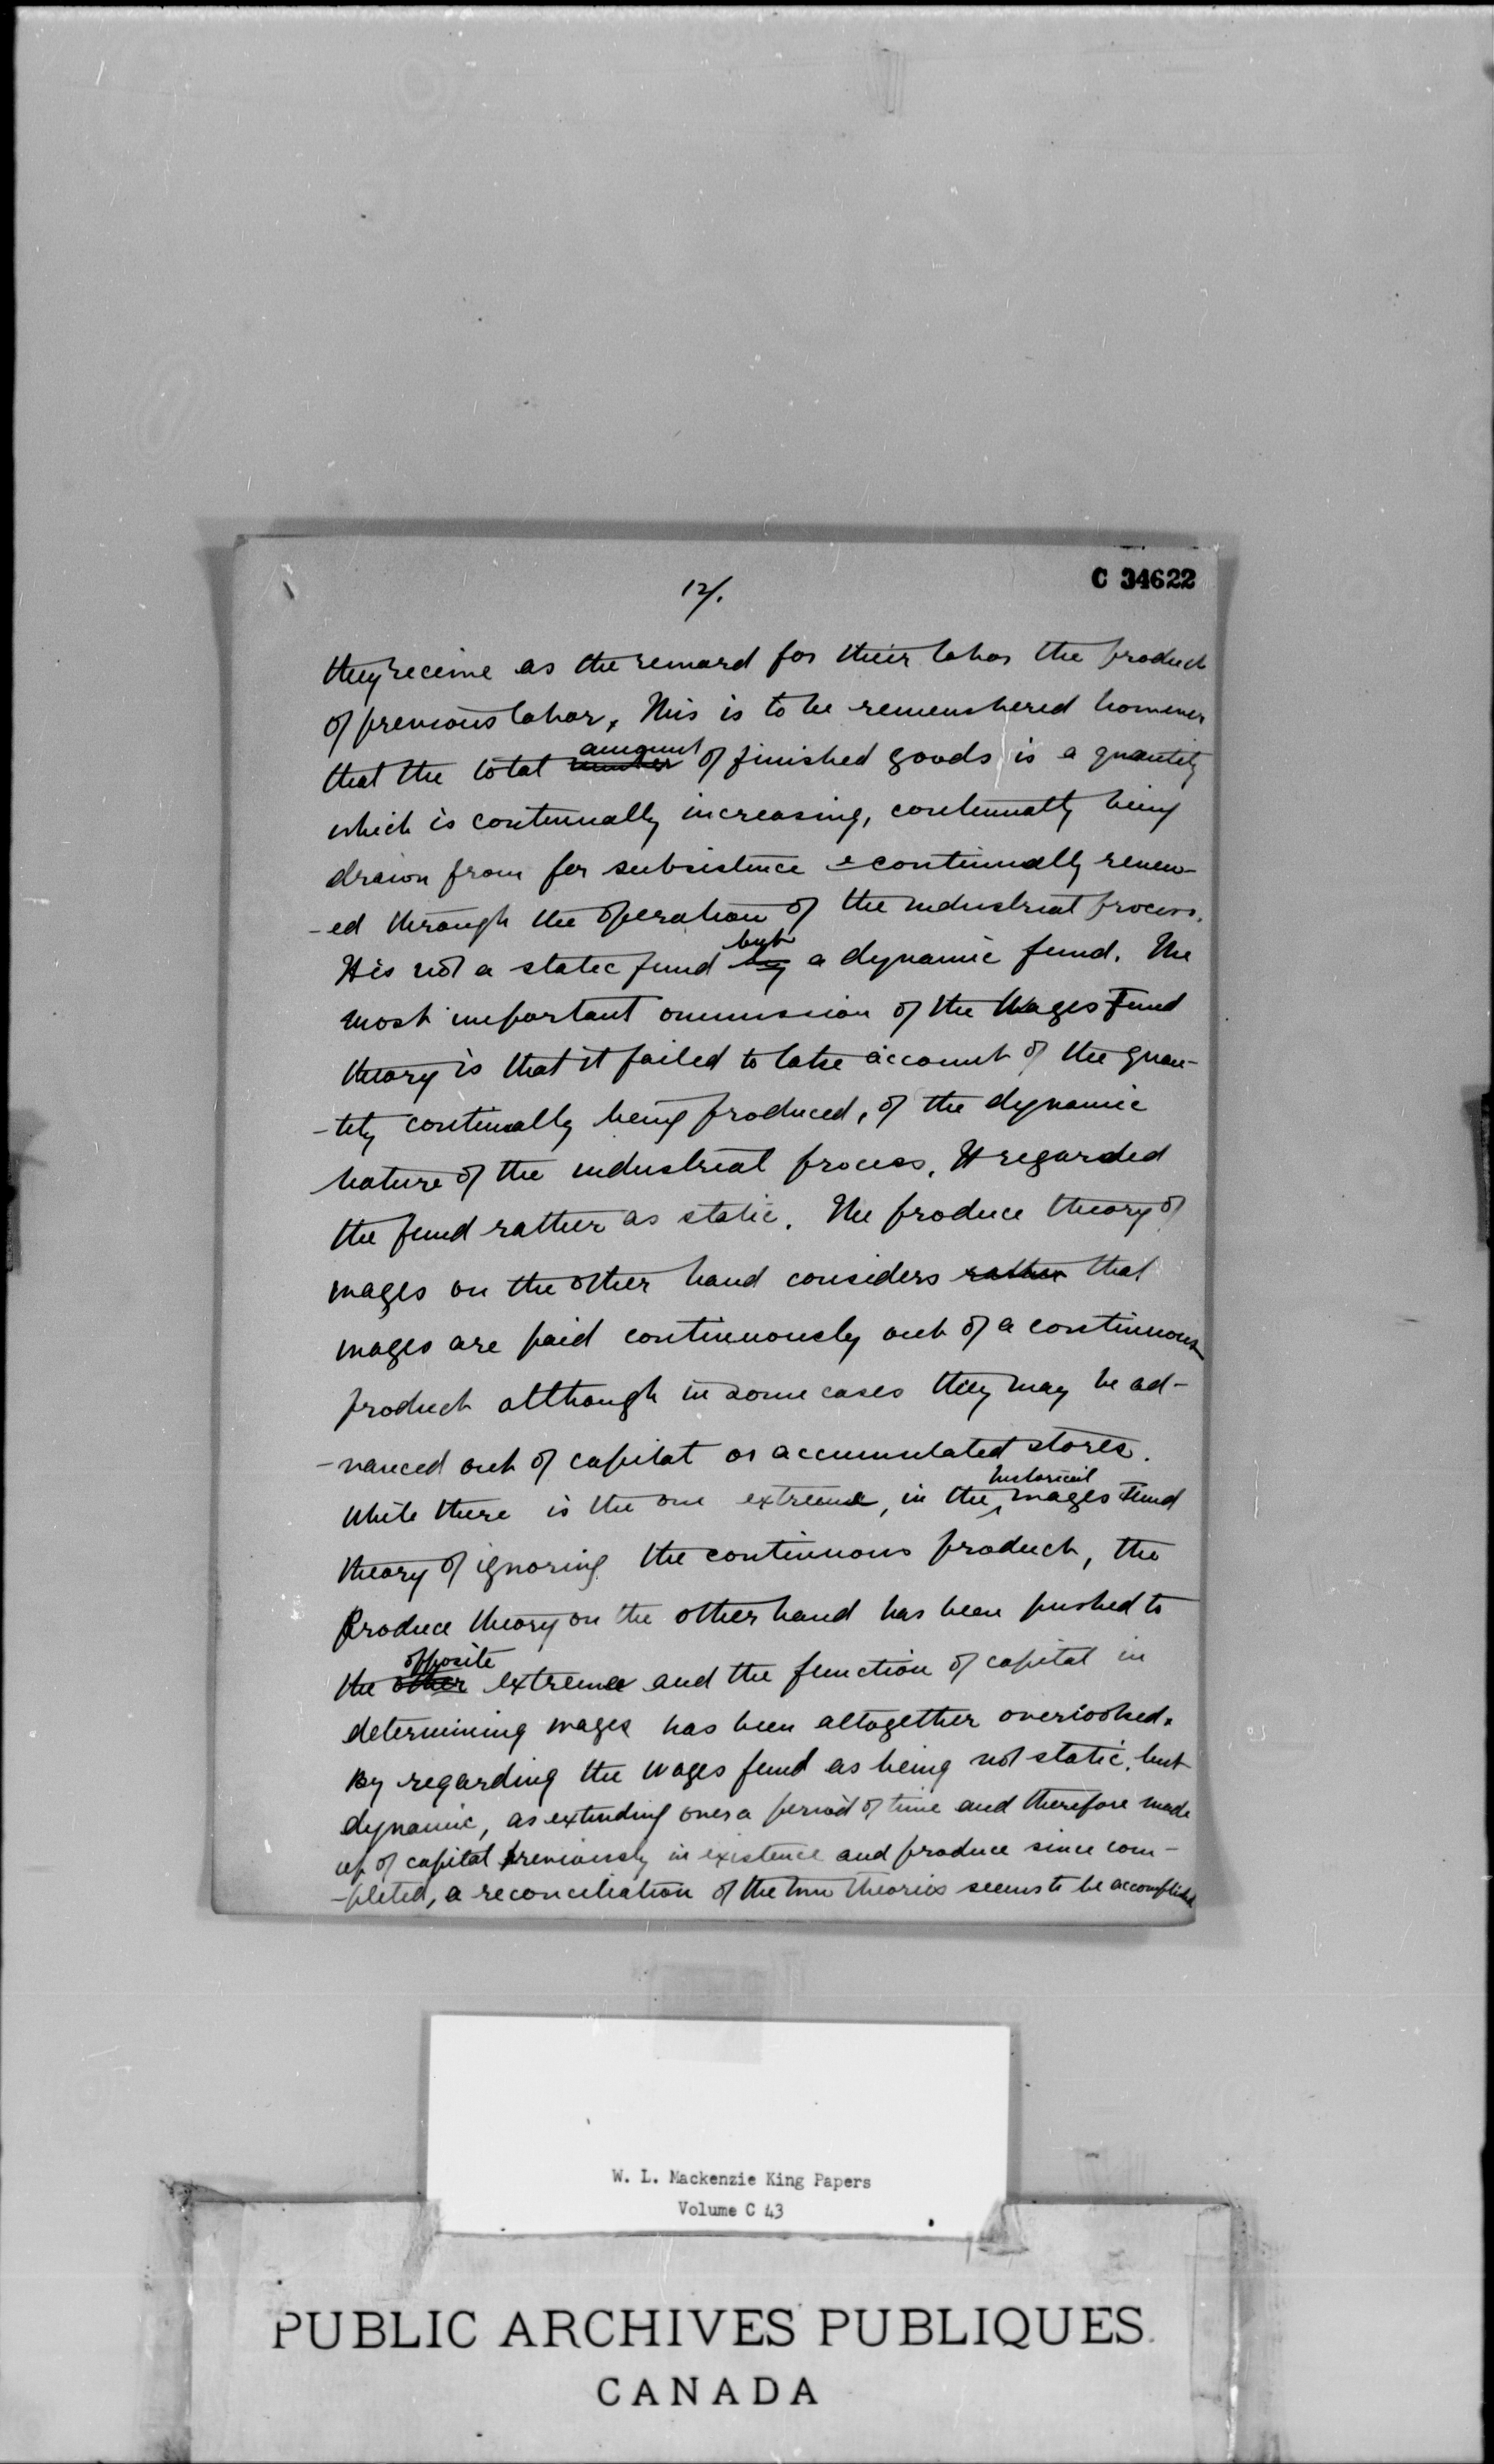 12/.
C 34622
they receive as the reward for their labor the product
of previous labor. This is to be remembered however
that the total number amount of finished goods is a quantity
which is continually increasing, continually being
drawn from for subsistence & continually renew-
-ed through the operation of the industrial process.
It is not a static fund by but a dynamic fund. The
most important ommission of the Wages Fund
theory is that it failed to take account of the quan-
-tity continually being produced, of the dynamic
nature of the industrial process. It regarded
the fund rather as static. The produce theory of
wages on the other hand considers rather that
wages are paid continuously out of a continuous
product although in some cases they may be ad-
-vanced out of capital or accumulated stores.
While there is the one extreme, in the historical wages Fund
theory of ignoring the continuous product, the
Produce theory on the other hand has been pushed to
the other opposite extreme and the function of capital in
determining wages has been altogether overlooked.
By regarding the wages fund as being not static, but
dynamic, as extending over a period of time and therefore made
up of capital previously in existence and produce since com-
-pleted, a reconciliation of the two theories seems to be accomplished
W. L. Mackenzie King Papers
Volume C 43
PUBLIC ARCHIVES PUBLIQUES
CANADA